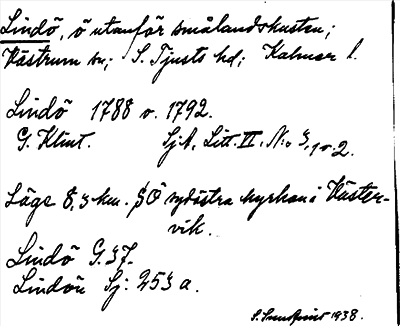 Lindö, ö utanför smålandskusten;
Västrum sn; S. Tjusts hd; Kalmar l.
Lindö 1788 o. 1792.
G. Klint. Sj.A. Litt. II. N:o 3, 1 o 2.
Läge 8,3 km. SÖ sydöstra kyrkan i Väster-
vik.
Lindö G. 37.
Lindön Sj: 253 a.
1938.